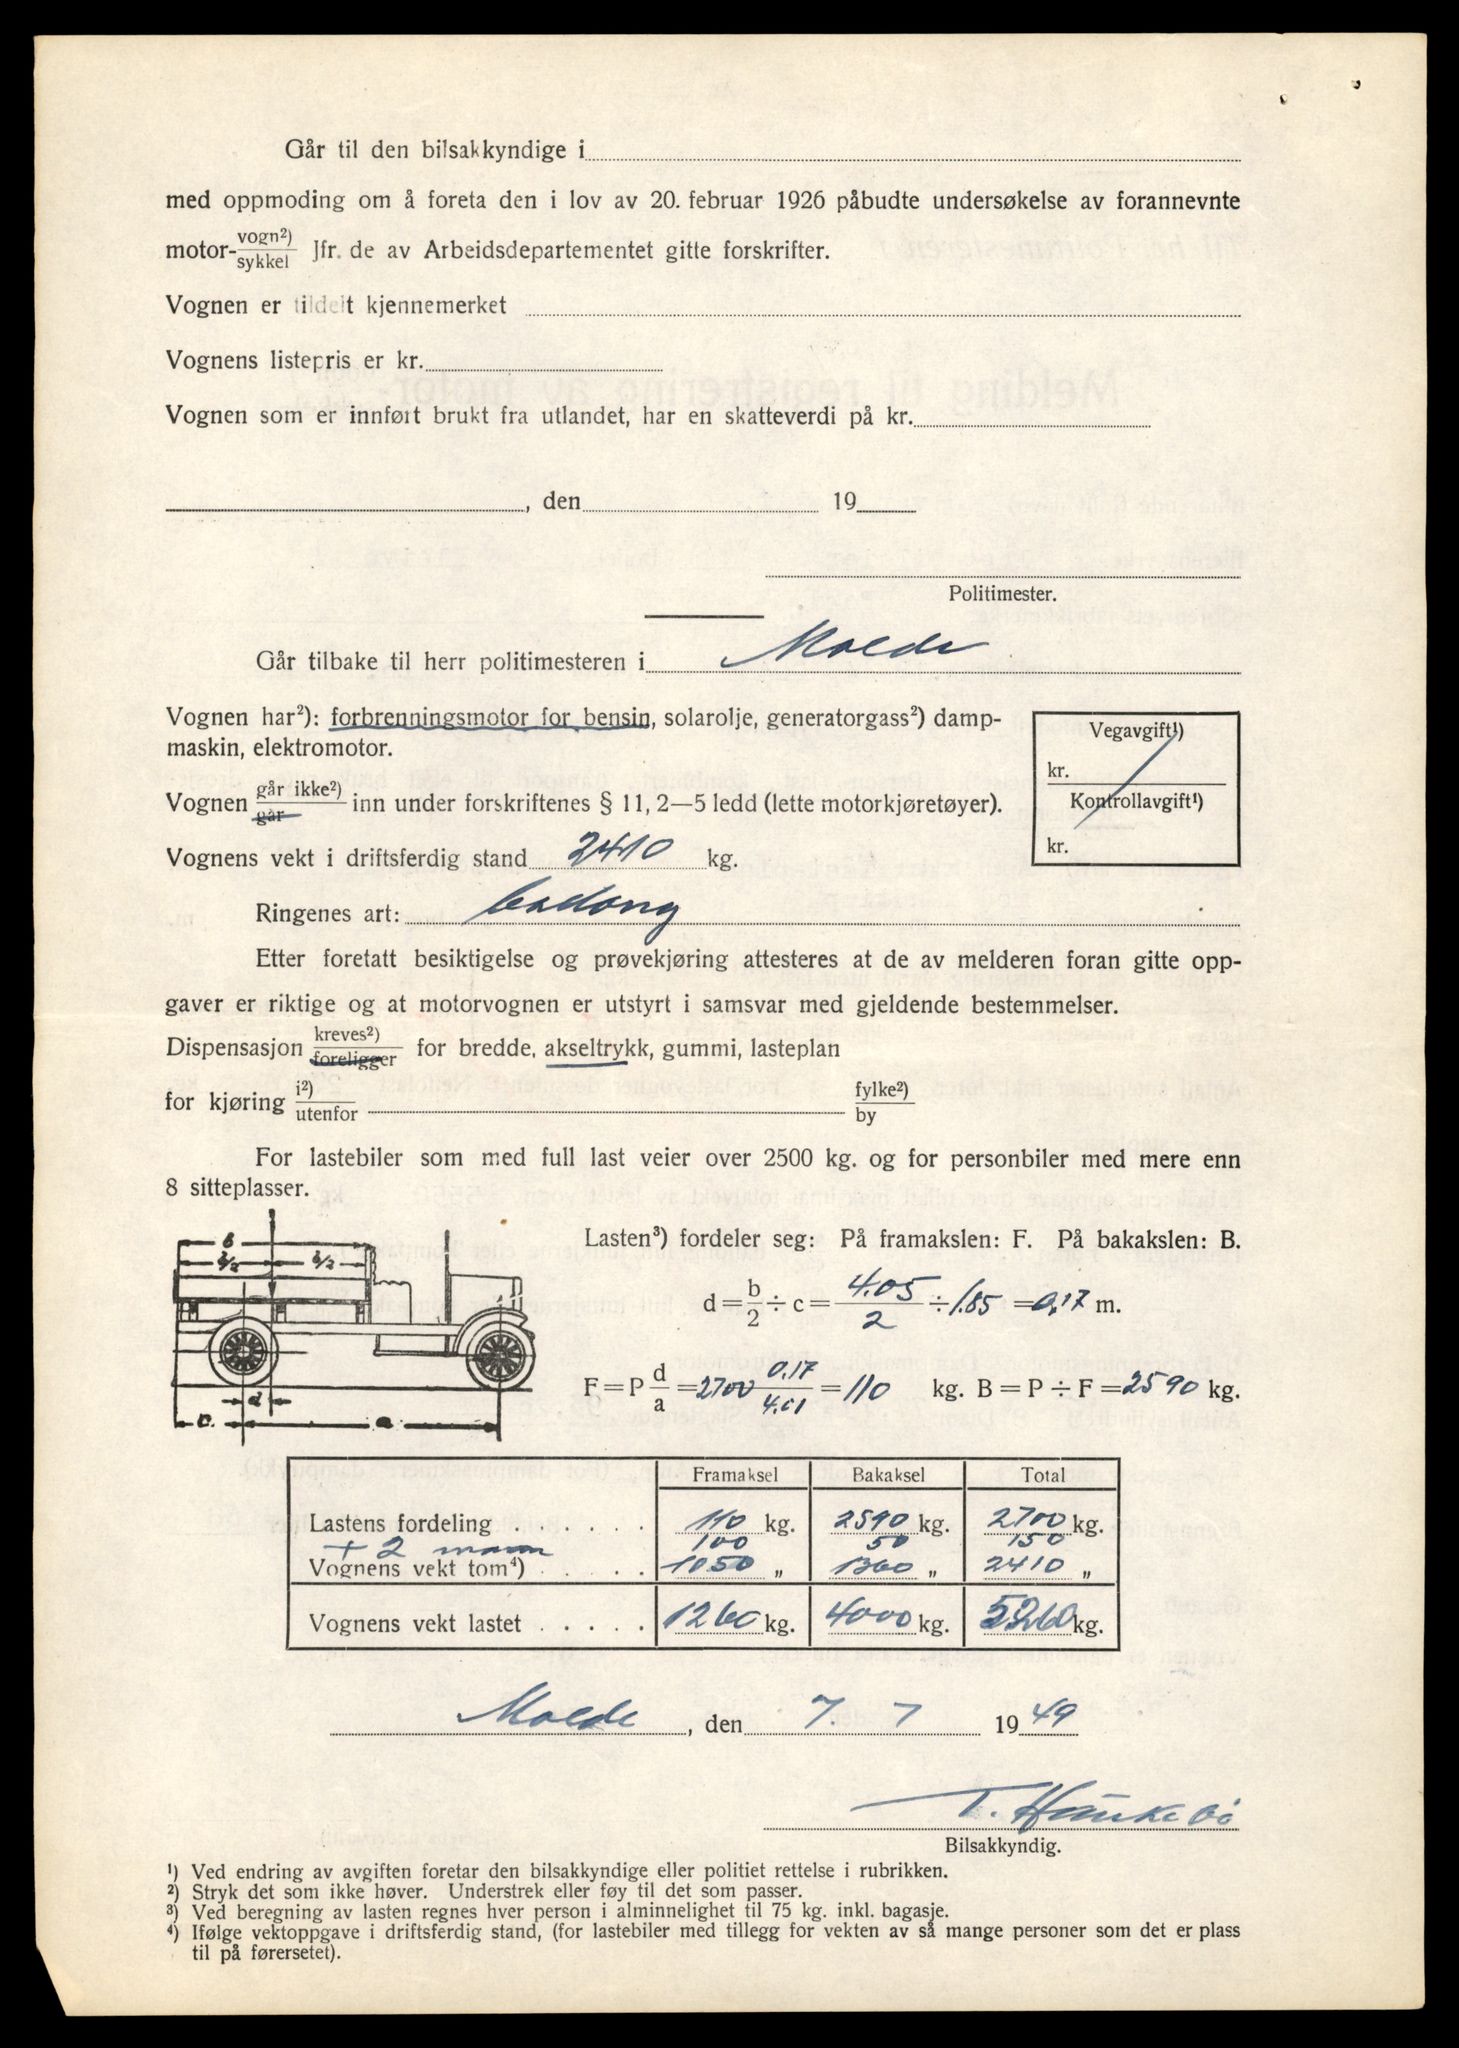 Går til den bilsakkyndige i
med oppmoding om å foreta den i lov av 20. februar 1926 påbudte undersøkelse av forannevnte
motor- vogn²) / sykkel Jfr. de av Arbeidsdepartementet gitte forskrifter.
Vognen er tildelt kjennemerket
Vognens listepris er kr.
Vognen som er innført brukt fra utlandet, har en skatteverdi på kr.
, den 19
Politimester.
Går tilbake til herr politimesteren i Molde
Vognen har²): forbrenningsmotor for bensin, solarolje, generatorgass²) damp-
maskin, elektromotor.
Vegavgift¹)
kr.
Kontrollavgift¹)
kr.
Vognen går ikke²) / går inn under forskriftenes § 11, 2—5 ledd (lette motorkjøretøyer).
Vognens vekt i driftsferdig stand 2410 kg.
Ringenes art:
Etter foretatt besiktigelse og prøvekjøring attesteres at de av melderen foran gitte opp-
gaver er riktige og at motorvognen er utstyrt i samsvar med gjeldende bestemmelser.
Dispensasjon kreves²) / foreligger for bredde, akseltrykk, gummi, lasteplan
for kjøring i²) / utenfor fylke²) / by
For lastebiler som med full last veier over 2500 kg. og for personbiler med mere enn
8 sitteplasser.
b
b/2 b/2
d
c. a
Lasten³) fordeler seg: På framakslen: F. På bakakslen: B.
d = b/2 ÷ c = 4.05/2 ÷ 1.85 = 0,17 m.
F = P d/a = 2700 0.17/4.01 = 110 kg. B = P ÷ F = 2590 kg.
Framaksel Bakaksel Total
Lastens fordeling . . . . . . 110 kg. 2590 kg. 2700 kg.
+ 2 mann 100 50 150
Vognens vekt tom⁴) . . . . . 1050 „ 1360 „ 2410 „
Vognens vekt lastet . . . . . 1260 kg. 4000 kg. 5260 kg.
Molde, den 7. 7 1949
T.
Bilsakkyndig.
¹) Ved endring av avgiften foretar den bilsakkyndige eller politiet rettelse i rubrikken.
²) Stryk det som ikke høver. Understrek eller føy til det som passer.
³) Ved beregning av lasten regnes hver person i alminnelighet til 75 kg. inkl. bagasje.
⁴) Ifølge vektoppgave i driftsferdig stand, (for lastebiler med tillegg for vekten av så mange personer som det er plass
til på førersetet).